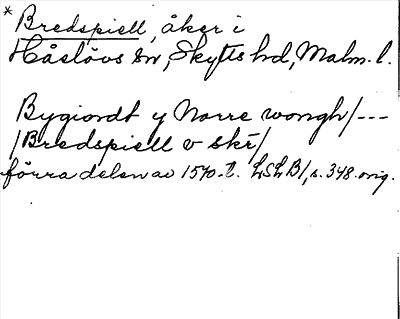 * Bredspiell, åker i
Håslövs sn, Skytts hd, Malm. l.
Bygiordt y Norre wongh/---
/Bredspiell v skr̄/
förra delen av 1570-t. LSLB1, s. 348. orig.